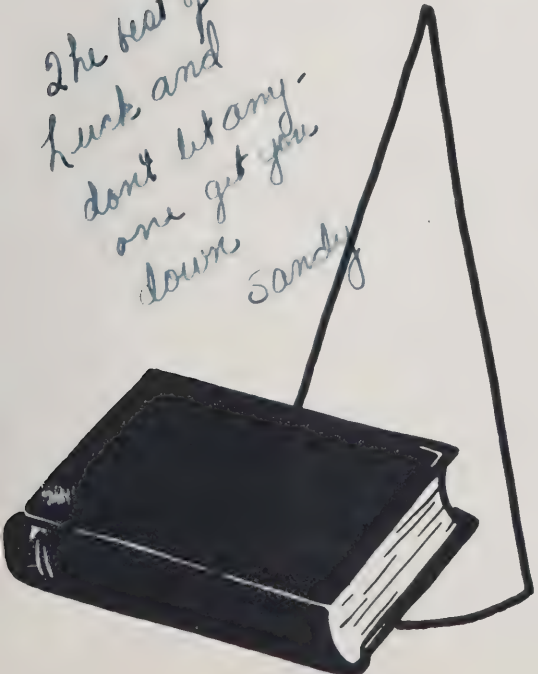 The best of
Luck and
don't let any-
one get you
down
Sandy